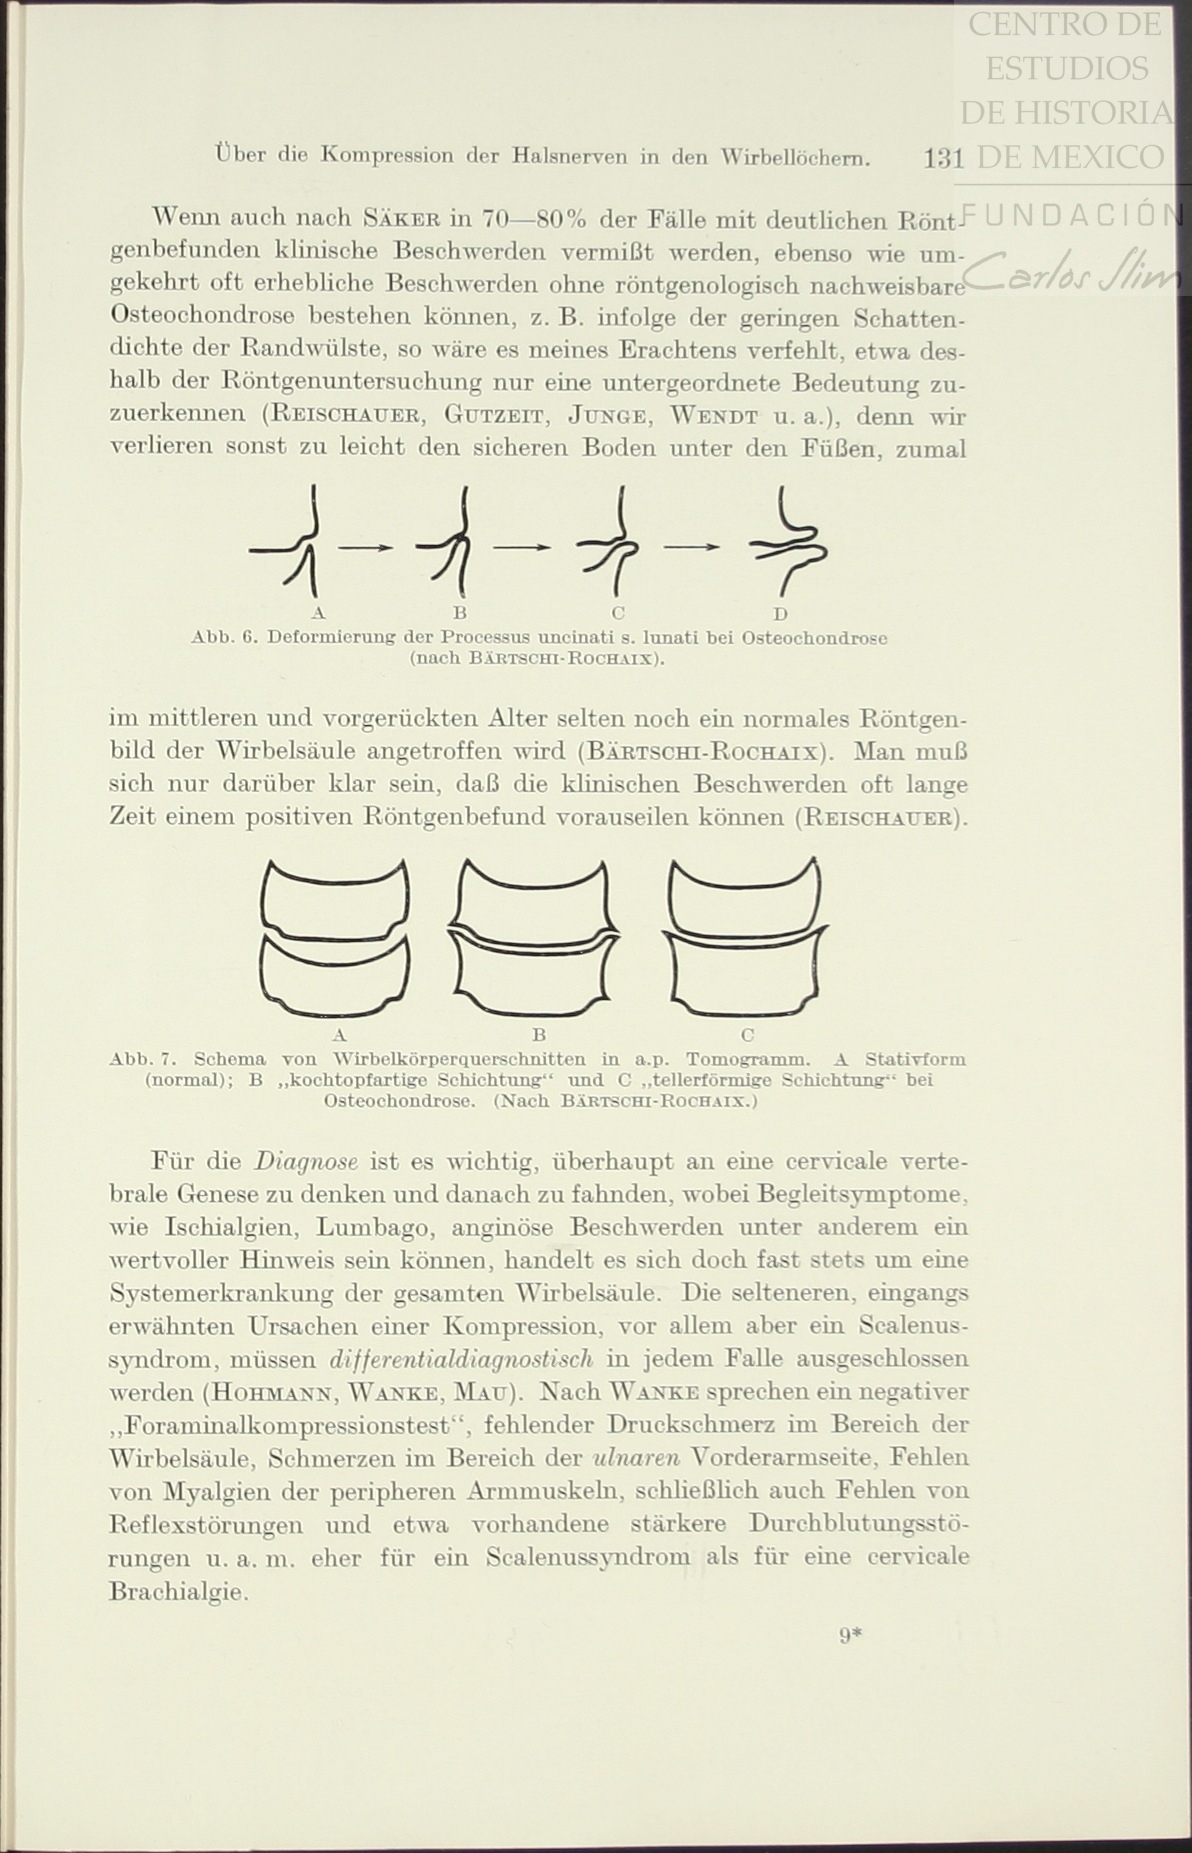 CENTRO DE
ESTUDIOS
DE HISTORIA
DE MEXICO
FUNDACIÓN
Carlos Slim
Über die Kompression der Halsnerven in den Wirbellöchern. 131
Wenn auch nach SÄKER in 70—80% der Fälle mit deutlichen Rönt-
genbefunden klinische Beschwerden vermißt werden, ebenso wie um-
gekehrt oft erhebliche Beschwerden ohne röntgenologisch nachweisbare
Osteochondrose bestehen können, z. B. infolge der geringen Schatten-
dichte der Randwülste, so wäre es meines Erachtens verfehlt, etwa des-
halb der Röntgenuntersuchung nur eine untergeordnete Bedeutung zu-
zuerkennen (REISCHAUER, GUTZEIT, JUNGE, WENDT u. a.), denn wir
verlieren sonst zu leicht den sicheren Boden unter den Füßen, zumal
A B C D
Abb. 6. Deformierung der Processus uncinati s. lunati bei Osteochondrose
(nach BÄRTSCHI-ROCHAIX).
im mittleren und vorgerückten Alter selten noch ein normales Röntgen-
bild der Wirbelsäule angetroffen wird (BÄRTSCHI-ROCHAIX). Man muß
sich nur darüber klar sein, daß die klinischen Beschwerden oft lange
Zeit einem positiven Röntgenbefund vorauseilen können (REISCHAUER).
A B C
Abb. 7. Schema von Wirbelkörperquerschnitten in a.p. Tomogramm. A Stativform
(normal); B „kochtopfartige Schichtung“ und C „tellerförmige Schichtung“ bei
Osteochondrose. (Nach BÄRTSCHI-ROCHAIX.)
Für die Diagnose ist es wichtig, überhaupt an eine cervicale verte-
brale Genese zu denken und danach zu fahnden, wobei Begleitsymptome,
wie Ischialgien, Lumbago, anginöse Beschwerden unter anderem ein
wertvoller Hinweis sein können, handelt es sich doch fast stets um eine
Systemerkrankung der gesamten Wirbelsäule. Die selteneren, eingangs
erwähnten Ursachen einer Kompression, vor allem aber ein Scalenus-
syndrom, müssen differentialdiagnostisch in jedem Falle ausgeschlossen
werden (HOHMANN, WANKE, MAU). Nach WANKE sprechen ein negativer
„Foraminalkompressionstest“, fehlender Druckschmerz im Bereich der
Wirbelsäule, Schmerzen im Bereich der ulnaren Vorderarmseite, Fehlen
von Myalgien der peripheren Armmuskeln, schließlich auch Fehlen von
Reflexstörungen und etwa vorhandene stärkere Durchblutungsstö-
rungen u. a. m. eher für ein Scalenussyndrom als für eine cervicale
Brachialgie.
9*